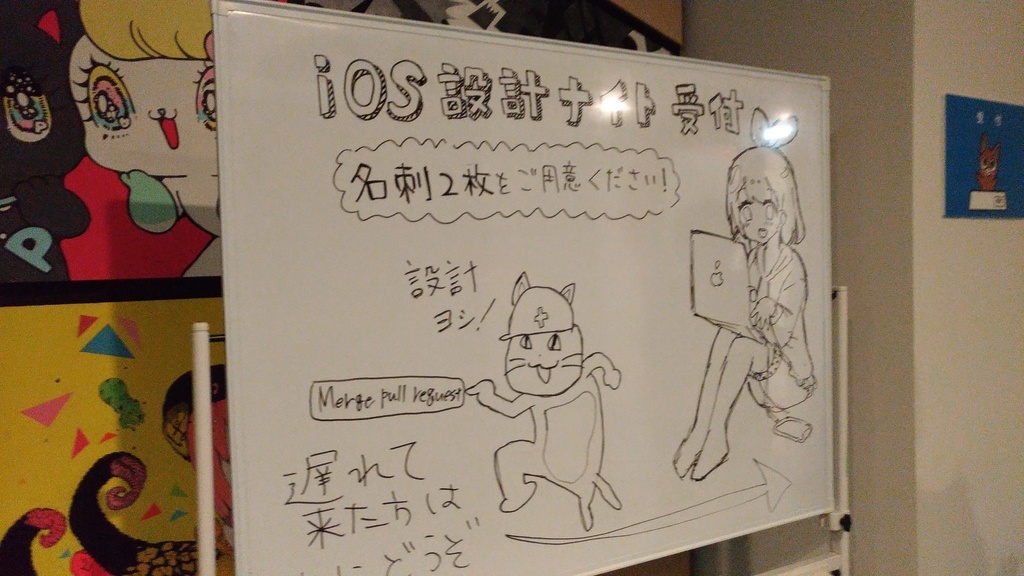 iOS設計ナイト受付
名刺2枚をご用意ください!
設計
ヨシ!
Merge pull request
遅れて
来た方は
どうぞ
P